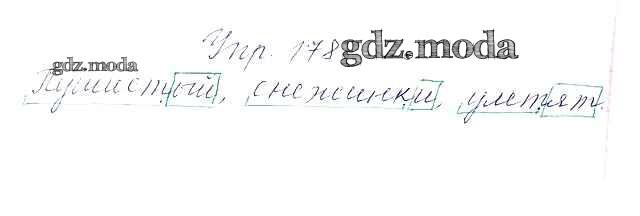 Упр. 178 gdz.moda
gdz.moda
Пушистый, снежинки, улетят.